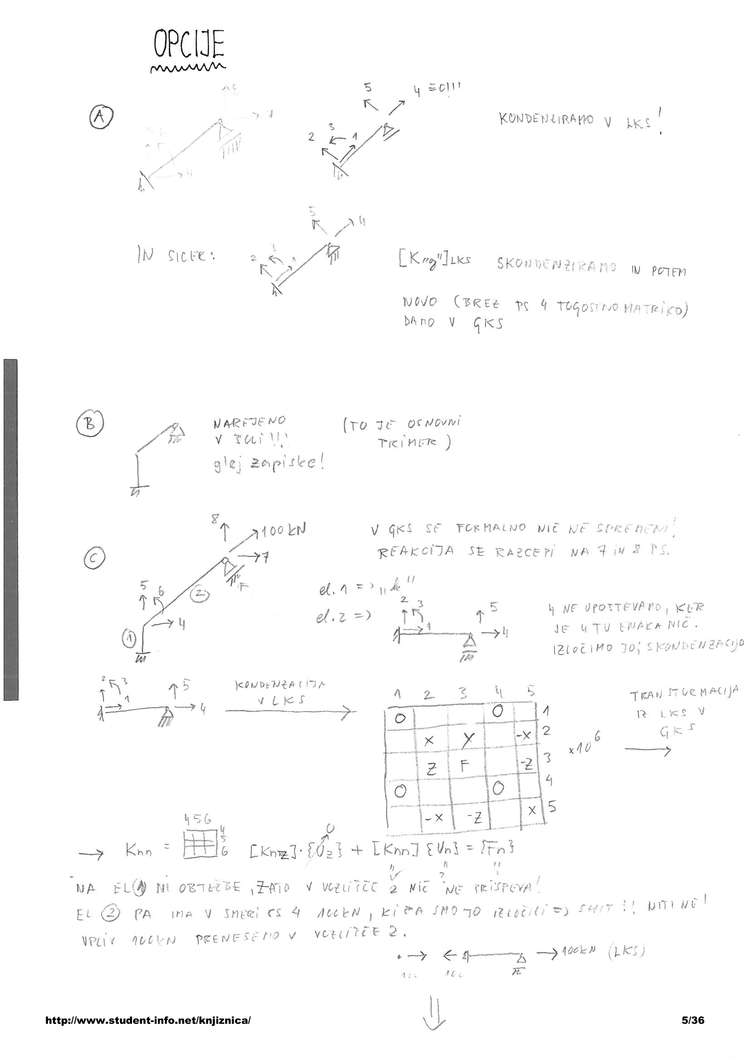 OPCIJE
A
5
4 = 0!!!
KONDENZIRAMO V LKS!
2 3 1
4
IN SICER:
5 4
2 3 1
[K"g"]LKS SKONDENZIRAMO IN POTEM
NOVO (BREZ PS 4 TOGOSTNO MATRIKO)
DAMO V GKS
B
NAREJENO (TO JE OSNOVNI
V ŠOLI!!! PRIMER)
glej zapiske!
C
8 100 kN
7
V GKS SE FORMALNO NIČ NE SPREMENI!
REAKCIJA SE RAZCEPI NA 7 IN 8 PS.
5 6
4
1 2
el. 1 => "k"
el. 2 =>
2 3 1 5 4
4 NE UPOŠTEVAMO, KER
JE 4 TU ENAKA NIČ.
IZLOČIMO JO; SKONDENZACIJO
2 3 1 5 4
KONDENZACIJA
V LKS
1 2 3 4 5
0 0 1
X Y -X 2
Z F -Z 3
0 0 4
-X -Z X 5
x10^6
TRANSFORMACIJA
IZ LKS V
GKS
→ Knn =
4 5 6
4
5
6
[Knz]·{Uz} + [Knn]{Un} = {Fn}
0
NA EL 1 NI OBTEŽBE, ZATO V VOZLIŠČE 2 NIČ NE PRISPEVA!
EL 2 PA IMA V SMERI PS 4 100kN, KI PA SMO JO IZLOČILI => !! NITI NE!
VPLIV 100kN PRENESEMO V VOZLIŠČE 2.
100kN (LKS)
http://www.student-info.net/knjiznica/
5/36